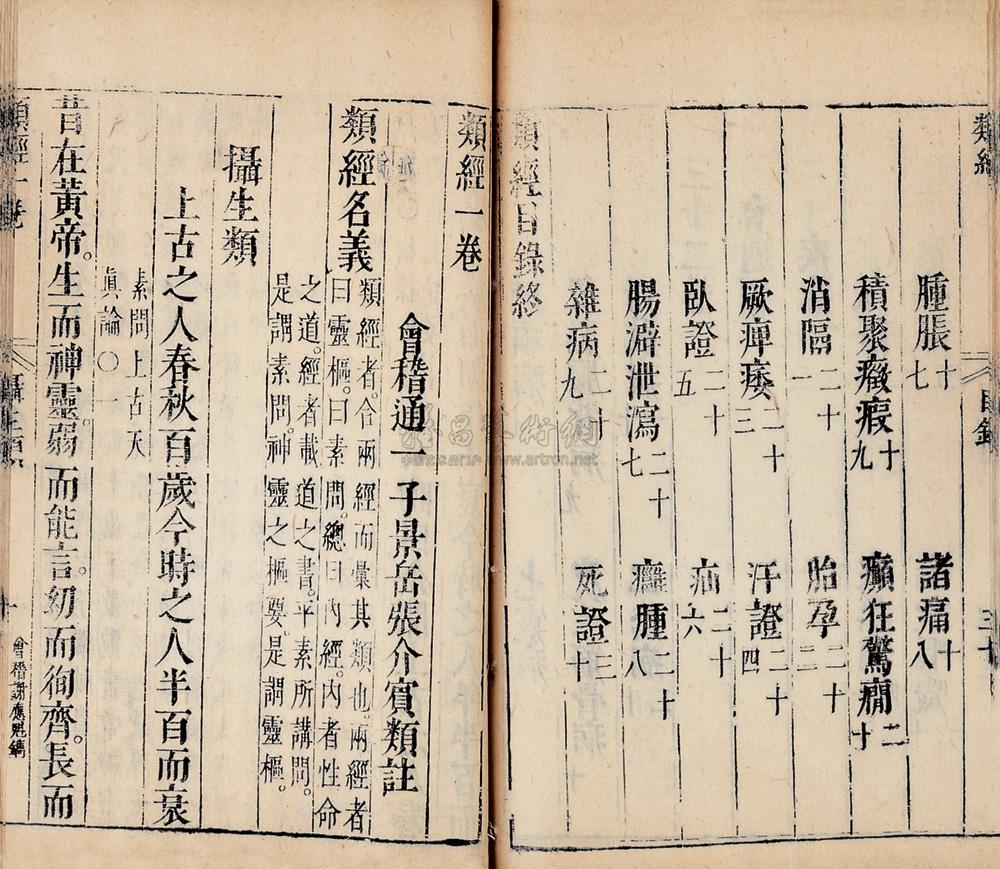 類經
目錄
三十
腫脹十七
諸痛十八
積聚癥瘕十九
癲狂驚癇二十
消隔二十一
胎孕二十二
厥痺痿二十三
汗證二十四
臥證二十五
疝二十六
腸澼泄瀉二十七
癰腫二十八
雜病二十九
死證三十
類經目錄終
類經一卷
會稽通一子景岳張介賓類註
類經名義
類經者。合兩經而彙其類也。兩經者
曰靈樞。曰素問。總曰內經。內者性命
之道。經者載道之書。平素所講問。
是謂素問。神靈之樞要。是謂靈樞。
攝生類
上古之人春秋百歲今時之人半百而衰
素問上古天
眞論○一
昔在黃帝。生而神靈。弱而能言。幼而徇齊。長而
類經一卷
攝生類
一
會稽謝應魁鐫
www.artron.net